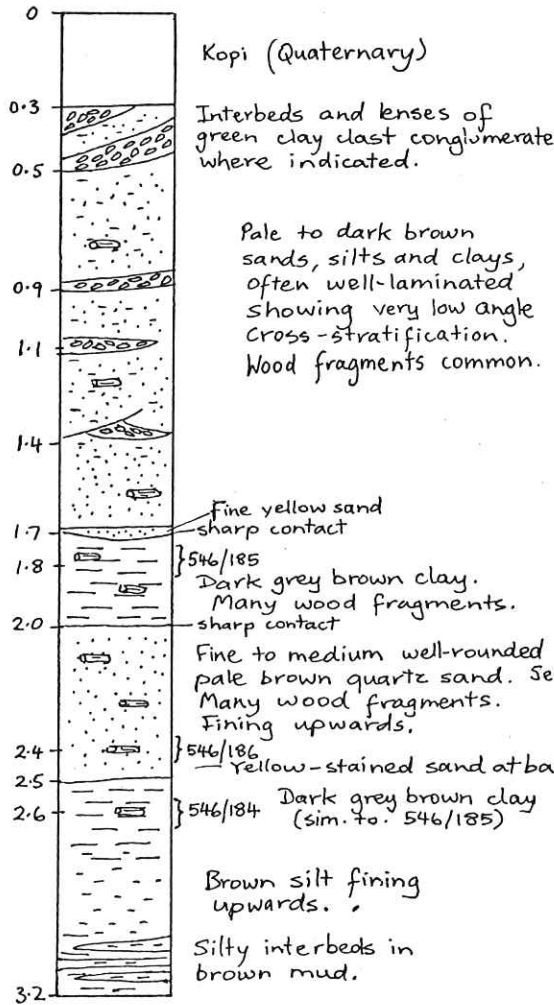 0
Kopi (Quaternary)
0.3
Interbeds and lenses of
green clay clast conglomerate
where indicated.
0.5
Pale to dark brown
sands, silts and clays,
often well-laminated
showing very low angle
cross-stratification.
Wood fragments common.
0.9
1.1
1.4
Fine yellow sand
1.7
sharp contact
546/185
1.8
Dark grey brown clay.
Many wood fragments.
2.0
sharp contact
Fine to medium well-rounded
pale brown quartz sand. Se
Many wood fragments.
Fining upwards.
2.4
546/186
Yellow-stained sand at ba
2.5
2.6
546/184
Dark grey brown clay
(sim. to. 546/185)
Brown silt fining
upwards.
Silty interbeds in
brown mud.
3.2